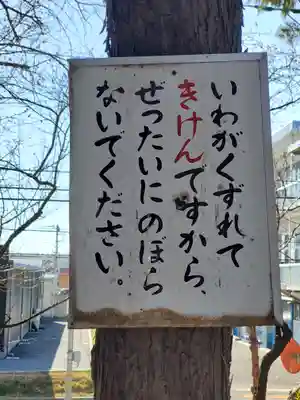 いわがくずれて
きけんですから、
ぜったいにのぼら
ないでください。